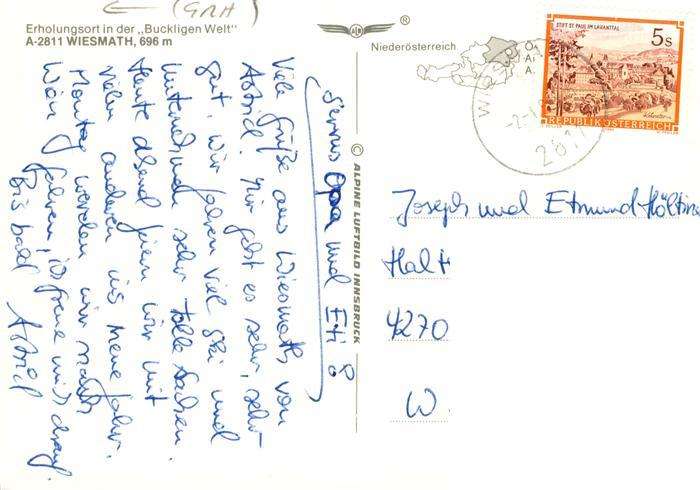 ← (GRH)
Erholungsort in der „Buckligen Welt"
A-2811 WIESMATH, 696 m
®
Niederösterreich
STIFT ST. PAUL IM LAVANTTAL
5s
REPUBLIK ÖSTERREICH
2811
© ALPINE LUFTBILD INNSBRUCK
Servus Opa und Eti 8
Viele Grüße aus Wiesmath, von
Astrid. Mir geht es sehr, sehr
gut. Wir fahren viel Ski und
unternehmen sehr tolle Sachen.
Heute abend feiern wir mit
vielen anderen ins neue Jahr.
Montag werden wir nach
Wien fahren, ich freue mich drauf.
Bis bald Astrid
Joseph und Etmund
Halt
4270
W.